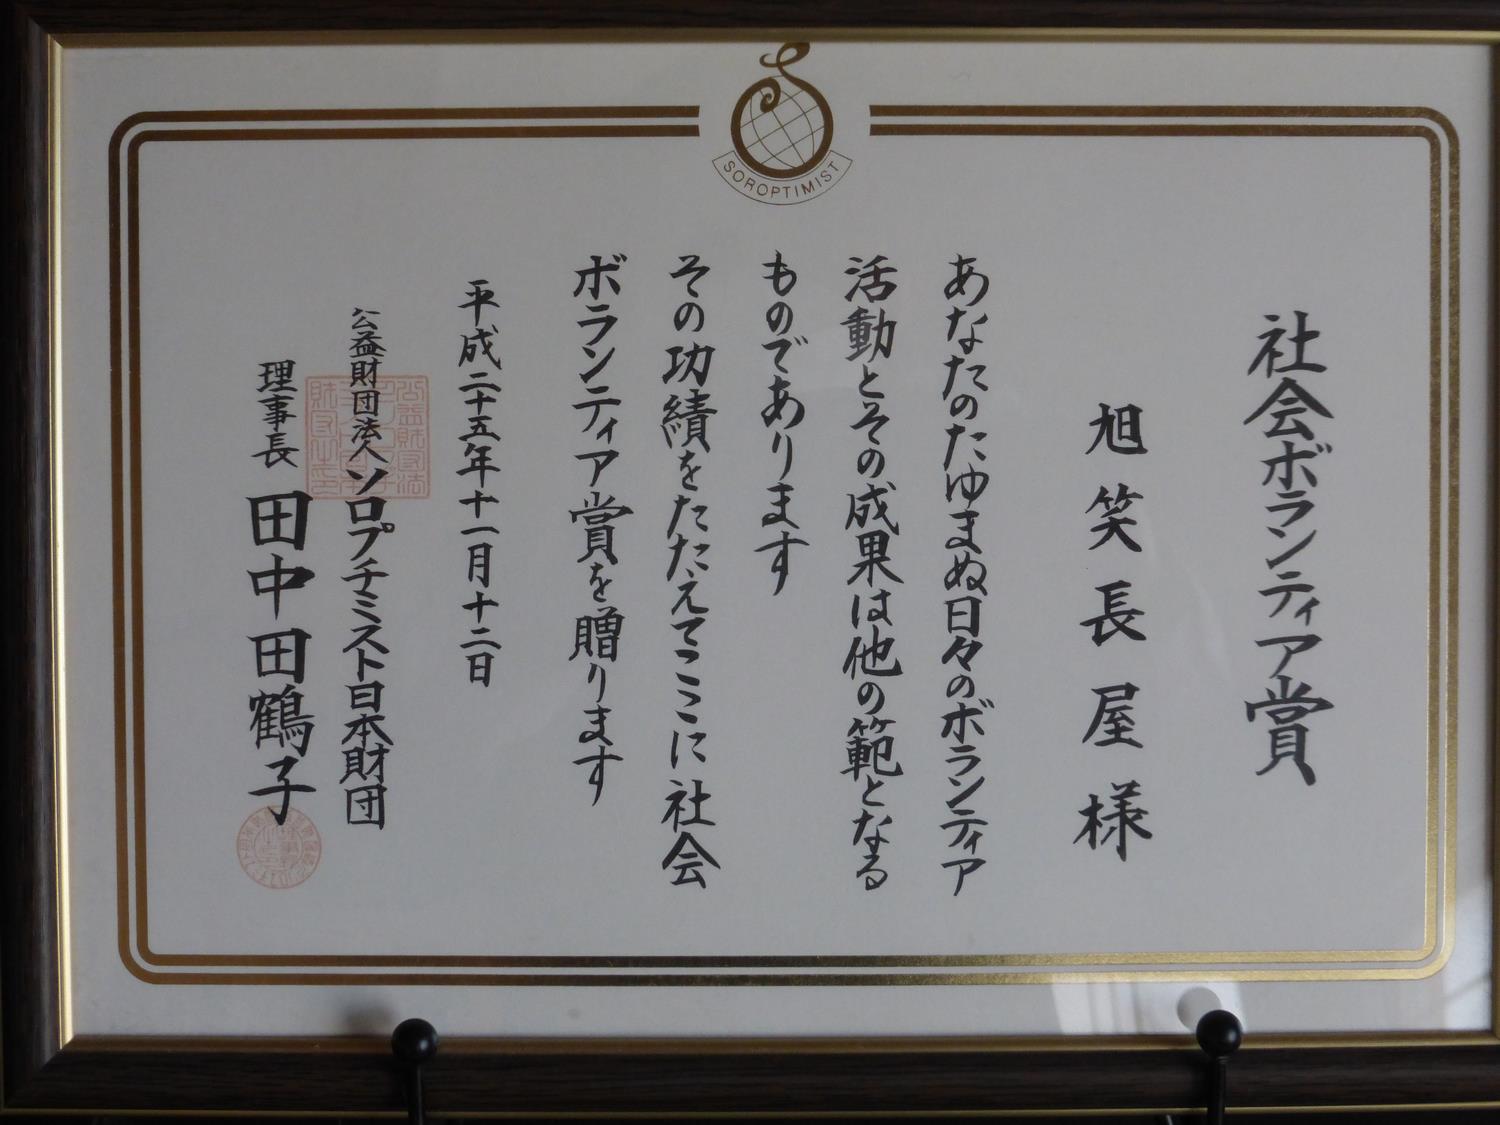 SOROPTIMIST
社会ボランティア賞
旭笑長屋様
あなたのたゆまぬ日々のボランティア
活動とその成果は他の範となる
ものであります
その功績をたたえてここに社会
ボランティア賞を贈ります
平成二十五年十一月十二日
公益財団法人ソロプチミスト日本財団
理事長 田中田鶴子